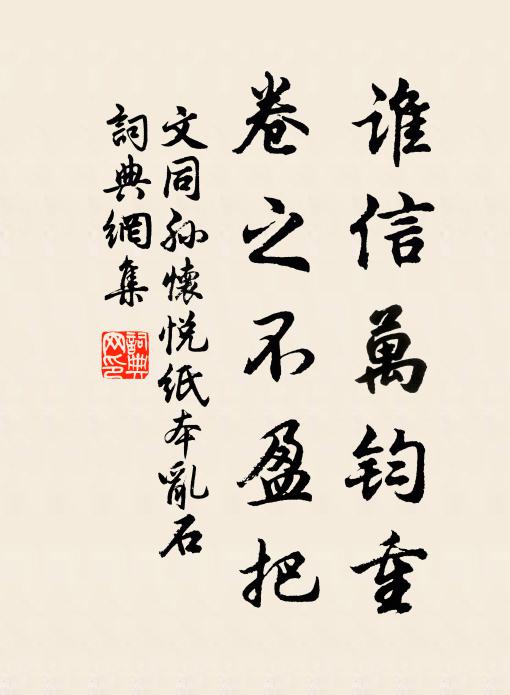 誰信萬鈞重
卷之不盈把
文同孙懷悦紙本亂石
詞典網集
詞典网印